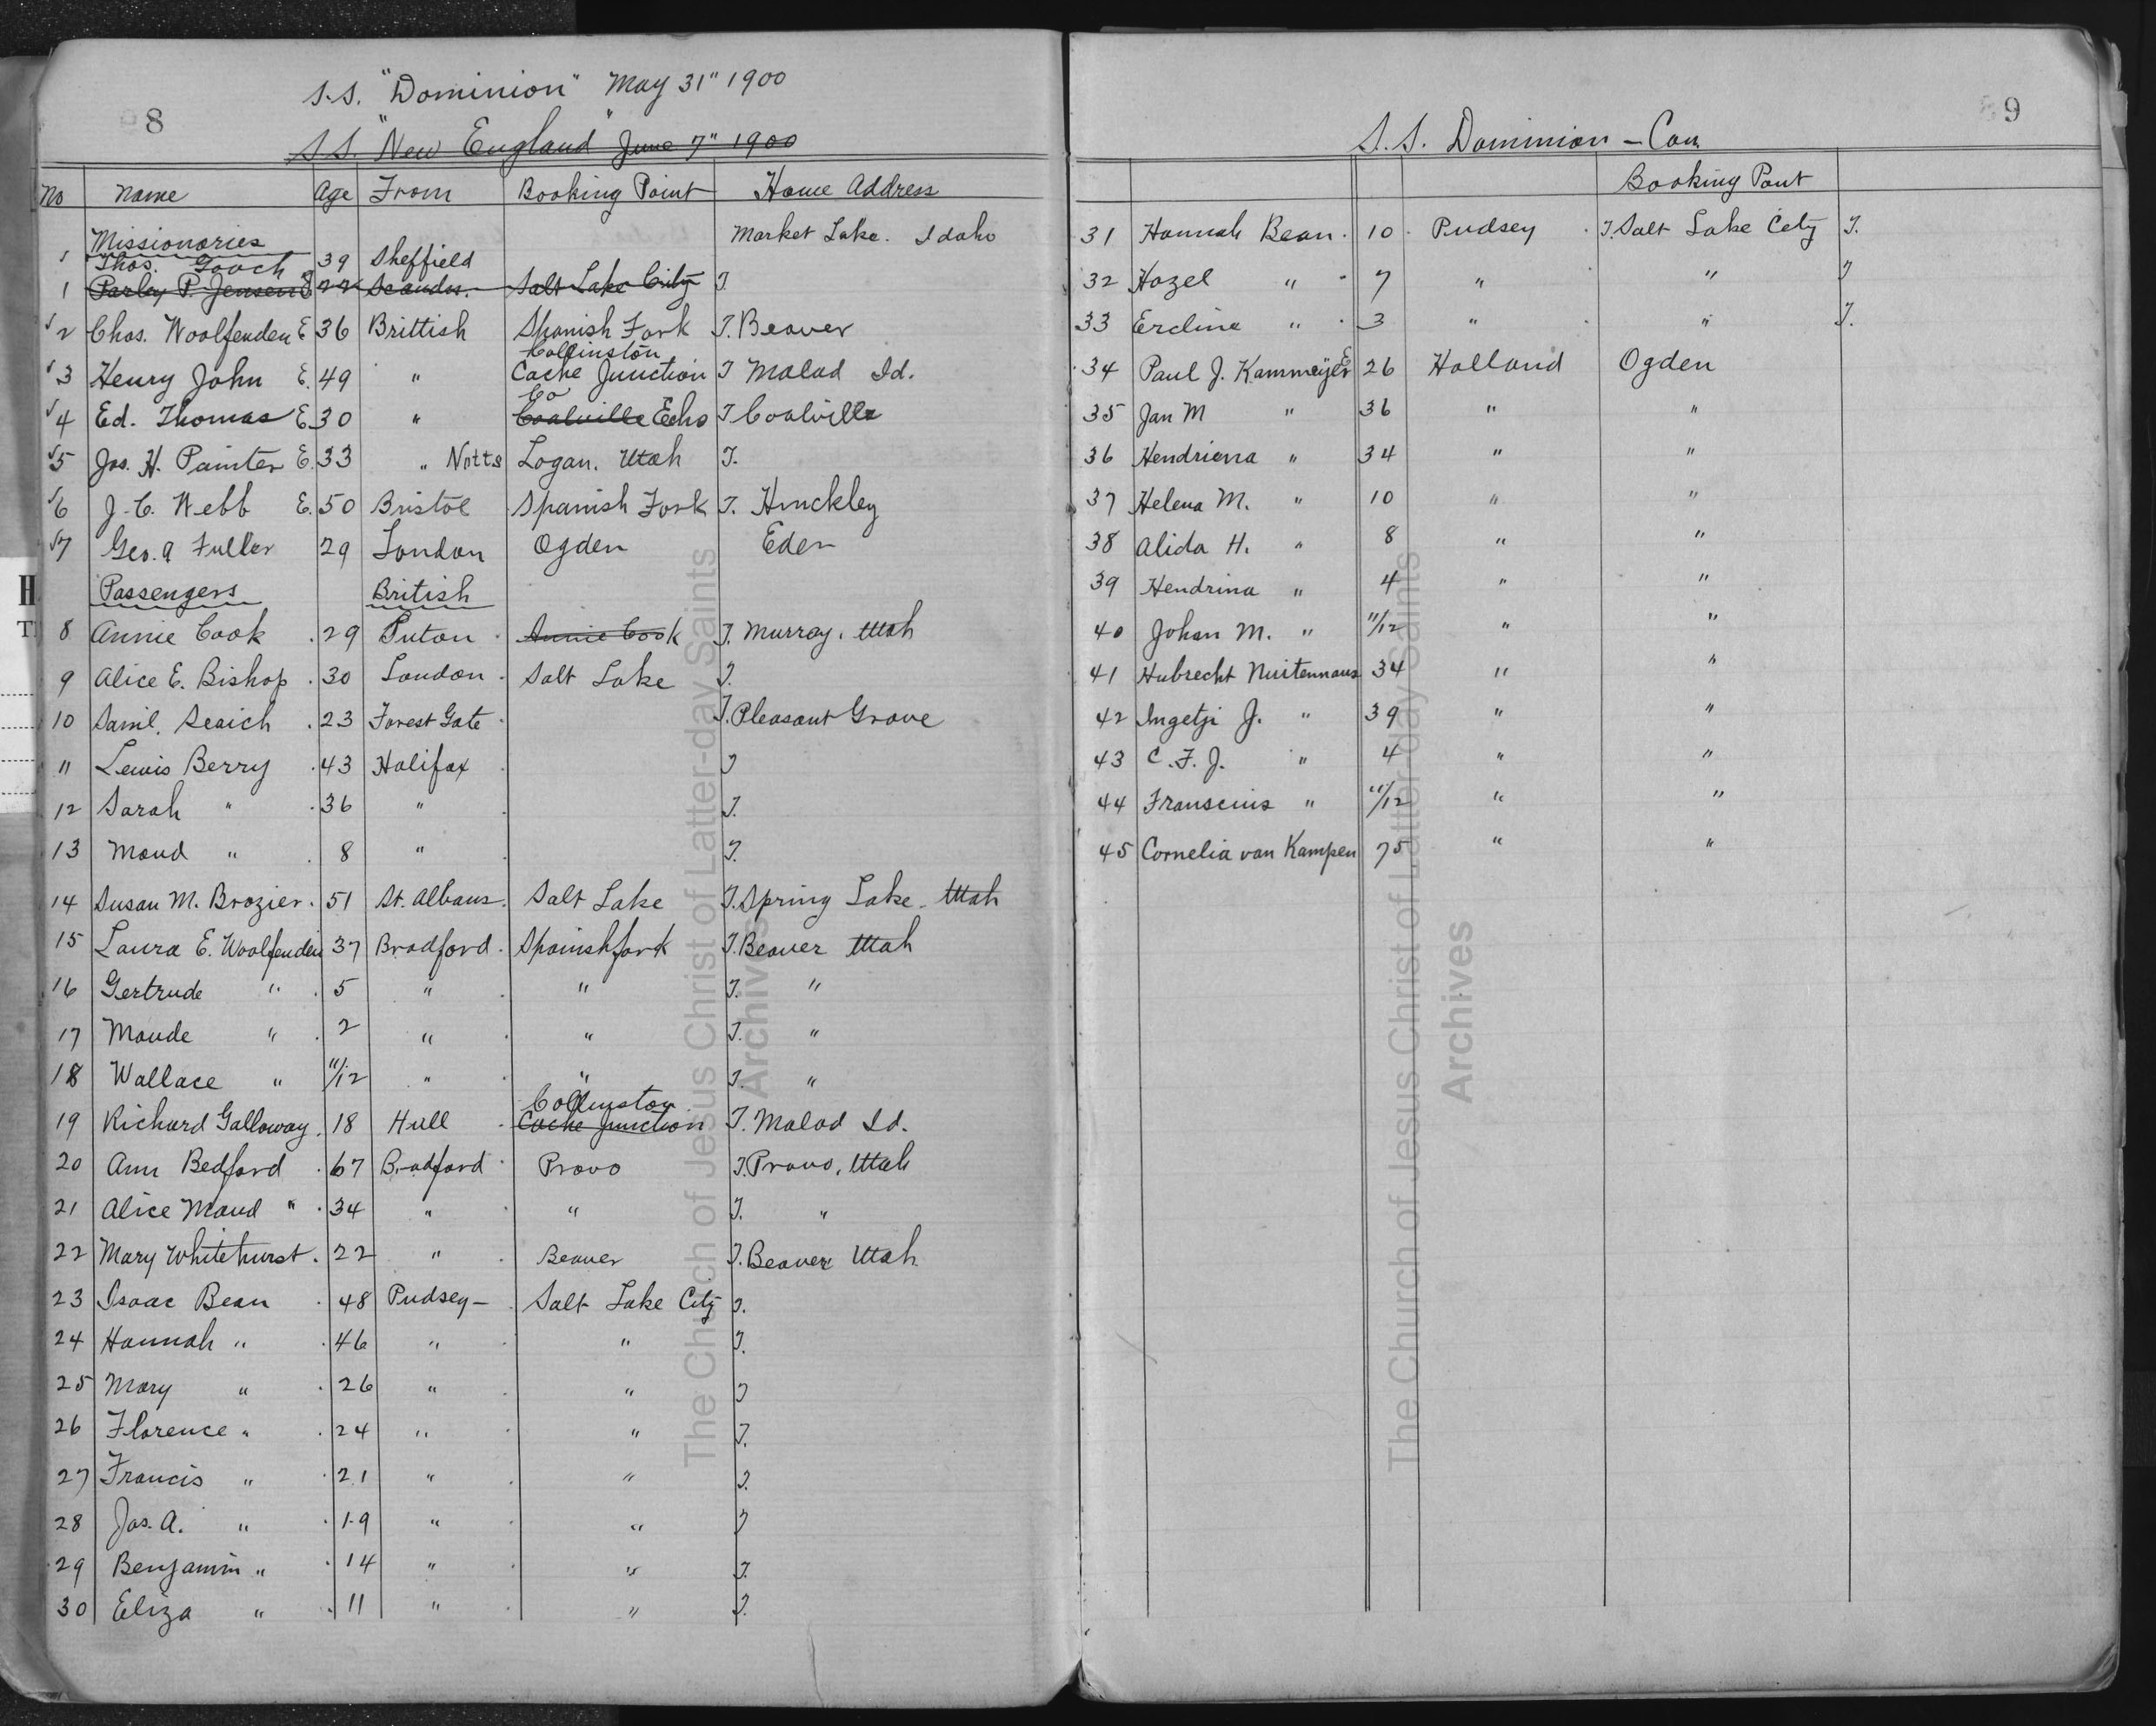 8
S.S. "Dominion" May 31" 1900
S.S. "New England" June 7" 1900
No Name Age From Booking Point Home Address
Missionaries Market Lake. Idaho
1 Thos. Gooch 39 Sheffield
1 Parley P. Jensen E 22 Scandn. Salt Lake City T.
2 Chas. Woolfenden E 36 Brittish Spanish Fork T. Beaver
Collinston
3 Henry John E. 49 " Cache Junction T Malad Id.
Co
4 Ed. Thomas E 30 " Coalville Echo T Coalville
5 Jos. H. Painter E. 33 " Notts Logan. Utah T.
6 J. C. Webb E. 50 Bristol Spanish Fork T. Hinckley
7 Geo. A Fuller 29 London Ogden Eden
Passengers British
8 Annie Cook . 29 Luton . Annie Cook T. Murray, Utah
9 Alice E. Bishop . 30 London . Salt Lake T.
10 Saml. Seaich . 23 Forest Gate . T. Pleasant Grove
11 Lewis Berry . 43 Halifax . T
12 Sarah " . 36 " . T.
13 Maud " . 8 " . T.
14 Susan M. Brozier . 51 St. Albans . Salt Lake T. Spring Lake. Utah
15 Laura E. Woolfenden 37 Bradford . Spainshfork T. Beaver Utah
16 Gertrude " . 5 " . " T. "
17 Maude " . 2 " . " T. "
18 Wallace " 11/12 " . " T. "
Collinston
19 Richard Galloway . 18 Hull . Cache Junction T. Malad Id.
20 Ann Bedford . 67 Bradford . Provo T. Provo, Utah
21 Alice Maud " . 34 " . " T. "
22 Mary Whitehurst . 22 " . Beaver T. Beaver Utah
23 Isaac Bean . 48 Pudsey - . Salt Lake City T.
24 Hannah " . 46 " . " T.
25 Mary " . 26 " . " T
26 Florence " . 24 " . " T.
27 Francis " . 21 " . " T.
28 Jas. A. " . 19 " . " T
29 Benjamin " . 14 " . " T.
30 Eliza " . 11 " . " T.
The Church of Jesus Christ of Latter-day Saints
Archives
9
S.S. Dominion - Con
Booking Pont
31 Hannah Bean . 10 . Pudsey . T. Salt Lake City T.
32 Hazel " . 7 " " T
33 Ercline " . 3 " . " T.
34 Paul J. Kammeijer E 26 Holland Ogden
35 Jan M " 36 " "
36 Hendriena " 34 " "
37 Helena M. " 10 " "
38 Alida H. " 8 " "
39 Hendrina " 4 " "
40 Johan M. " 11/12 " "
41 Hubrecht Nuitennaus 34 " "
42 Ingetji J. " 39 " "
43 C. F. J. " 4 " "
44 Franscius " 11/12 " "
45 Cornelia van Kampen 75 " "
The Church of Jesus Christ of Latter-day Saints
Archives